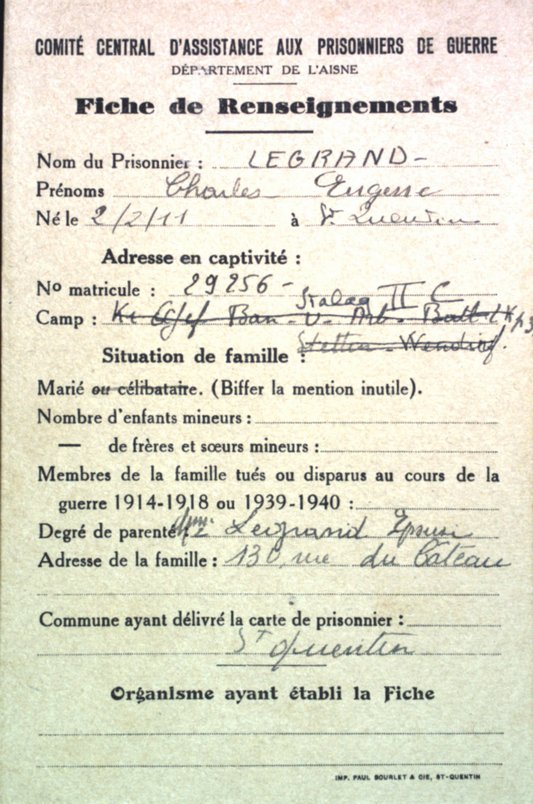 COMITÉ CENTRAL D'ASSISTANCE AUX PRISONNIERS DE GUERRE
DÉPARTEMENT DE L'AISNE
Fiche de Renseignements
Nom du Prisonnier : LEGRAND -
Prénoms Charles Eugene
Né le 2/2/11 à St Quentin
Adresse en captivité :
No matricule : 29256 -
Stalag II C
Camp : Kr Gef Bau - u - Arb - Batt
Stettin - Wendorf.
Situation de famille :
Marié ou célibataire. (Biffer la mention inutile).
Nombre d'enfants mineurs :
— de frères et sœurs mineurs :
Membres de la famille tués ou disparus au cours de la
guerre 1914-1918 ou 1939-1940 :
Degré de parenté Legrand
Adresse de la famille : 130, rue du Cateau
Commune ayant délivré la carte de prisonnier :
St Quentin
Organisme ayant établi la Fiche
IMP. PAUL BOURLET & CIE, ST-QUENTIN